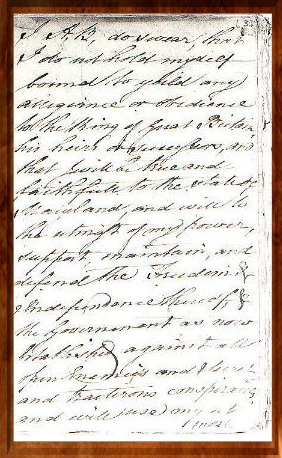 I A. B. do swear, that
I do not hold myself
bound to yeild any
allegiance or obedience
to the King of Great Britain
his heirs or successors, and
that I will be true and
faithfull to the State of
Maryland, and will to
the utmost of my power,
support, maintain, and
defend the Freedom &
Independence thereof,
the Government as now
established against all
open Enemies and secret
and traiterous conspiracies
and will use my ut
most